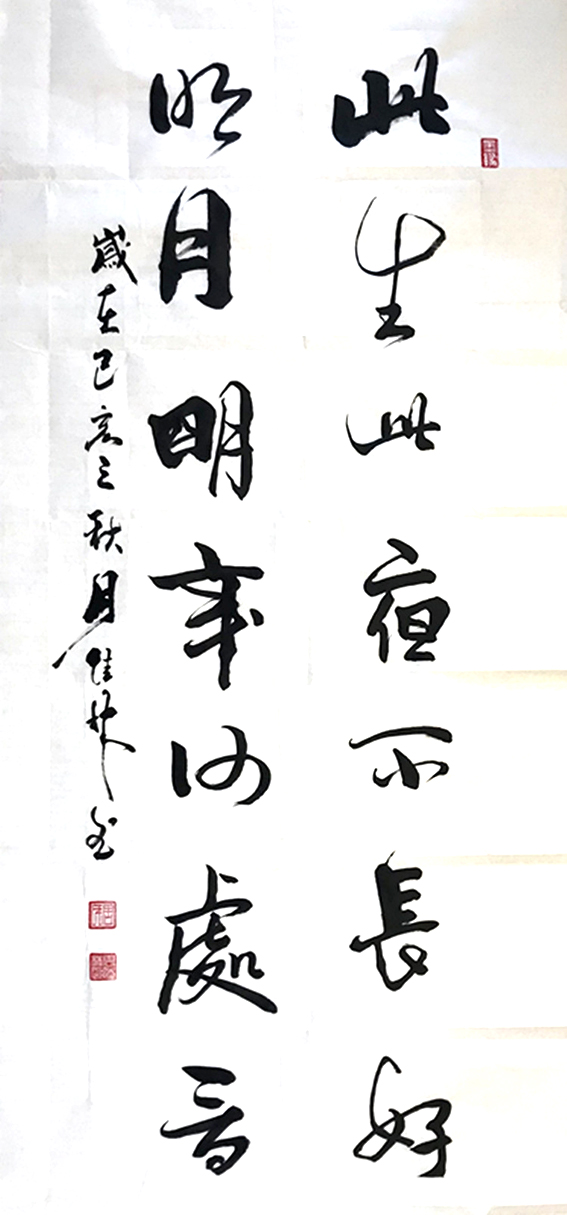 此生此夜不長好
明月明年何處看
歲在己亥之秋月佳林書